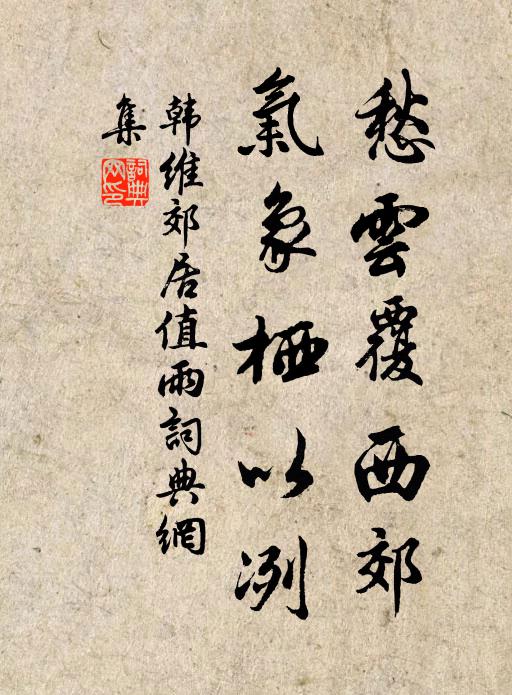 愁雲覆西郊
氣象栖以冽
韩维郊居值雨詞典網
集
詞典網印